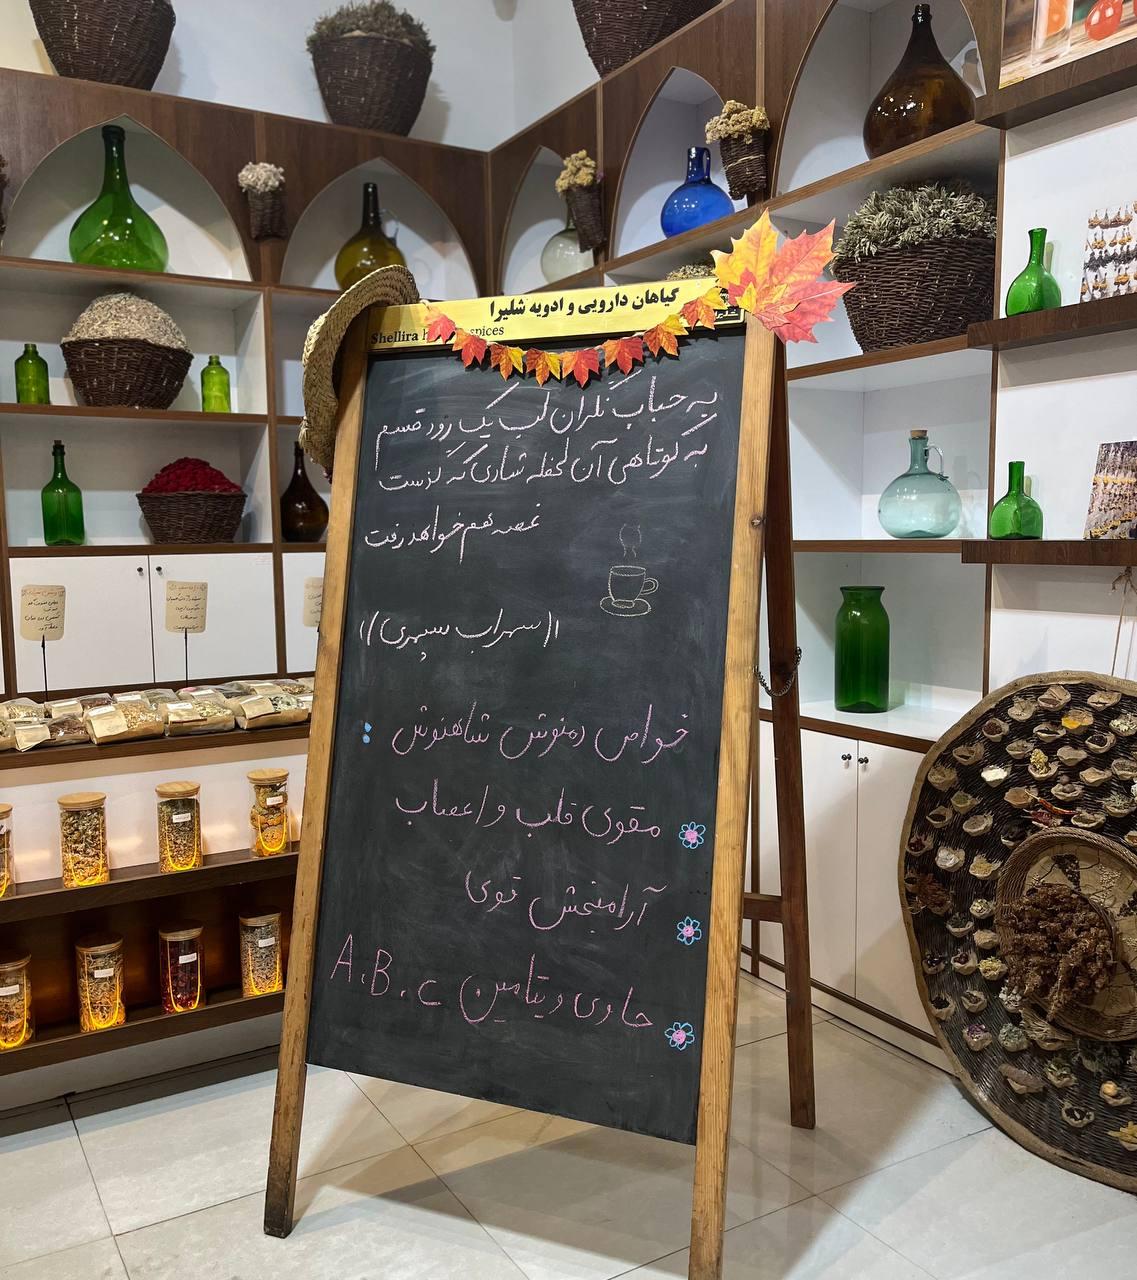 گیاهان دارویی و ادویه شلیرا
Shellira spices
به حباب نگران لب یک رود قسم
به کوتاهی آن لحظه شادی که گذشت
غصه هم خواهد رفت
((سهراب سپهری))
خواص دمنوش شاهنوش :
مقوی قلب و اعصاب
آرامبخش قوی
حاوی ویتامین A.B.C